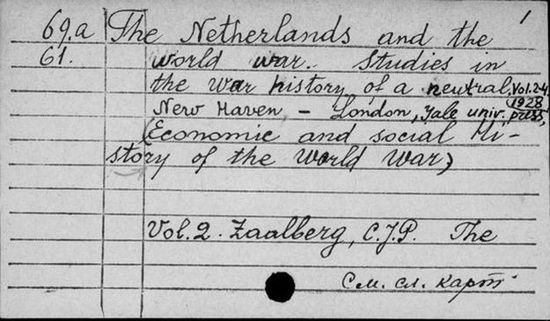 1
69.a The Netherlands and the
61. world war. Studies in
the war history of a neutral, Vol. 2-4
New Haven, - London, Yale univ. press, 1928
(Economic and social Hi-
story of the World War)
Vol. 2. Zaalberg, C.J.P. The
См. сл. карт.